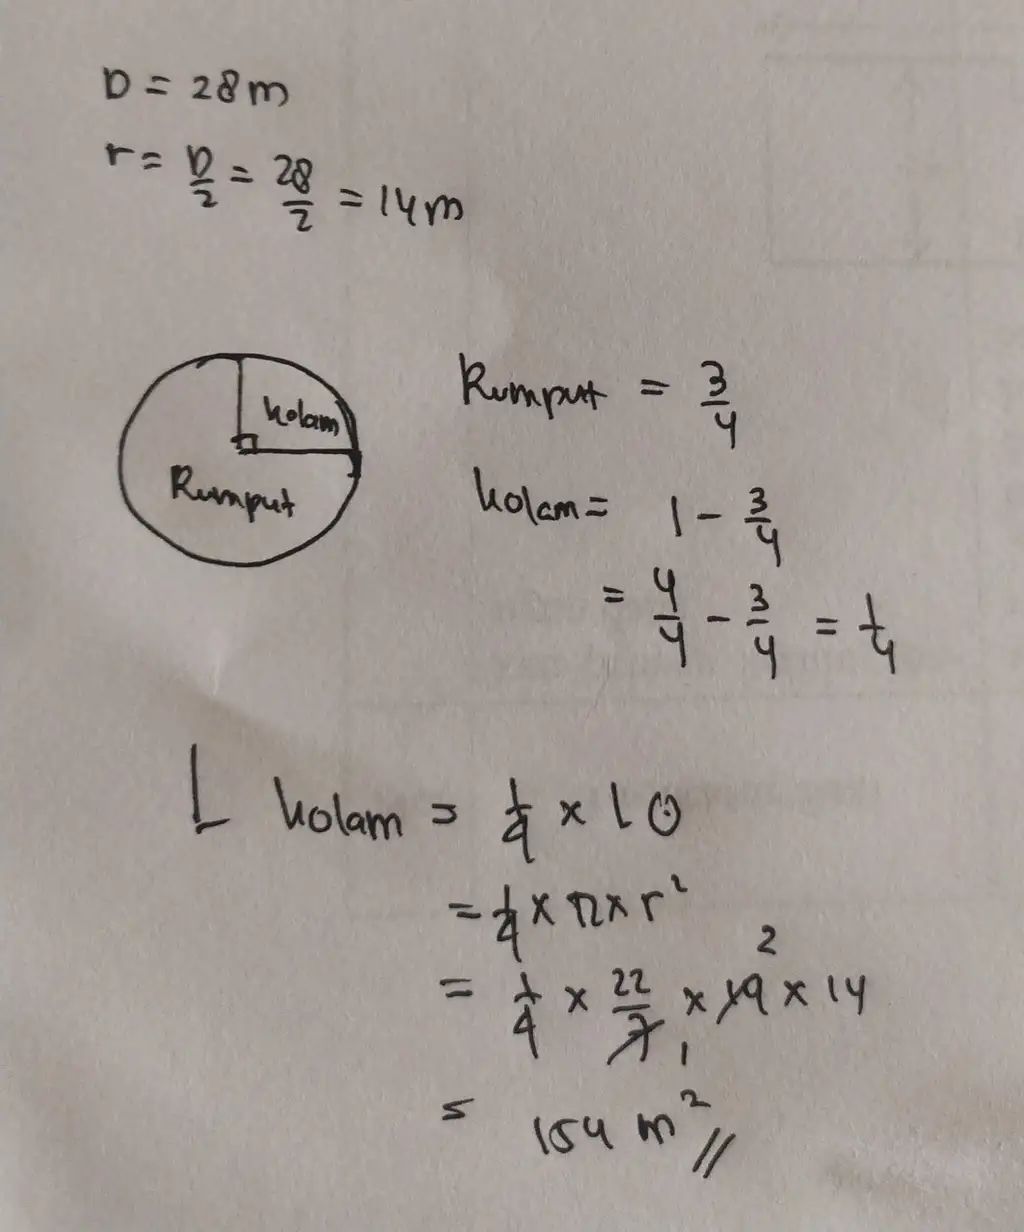 D = 28 m
r = D/2 = 28/2 = 14 m
kolam
Rumput
Rumput = 3/4
kolam = 1 - 3/4
= 4/4 - 3/4 = 1/4
L kolam = 1/4 × L ⊙
= 1/4 × π × r²
= 1/4 × 22/7 1 × 14 2 × 14
= 154 m² //